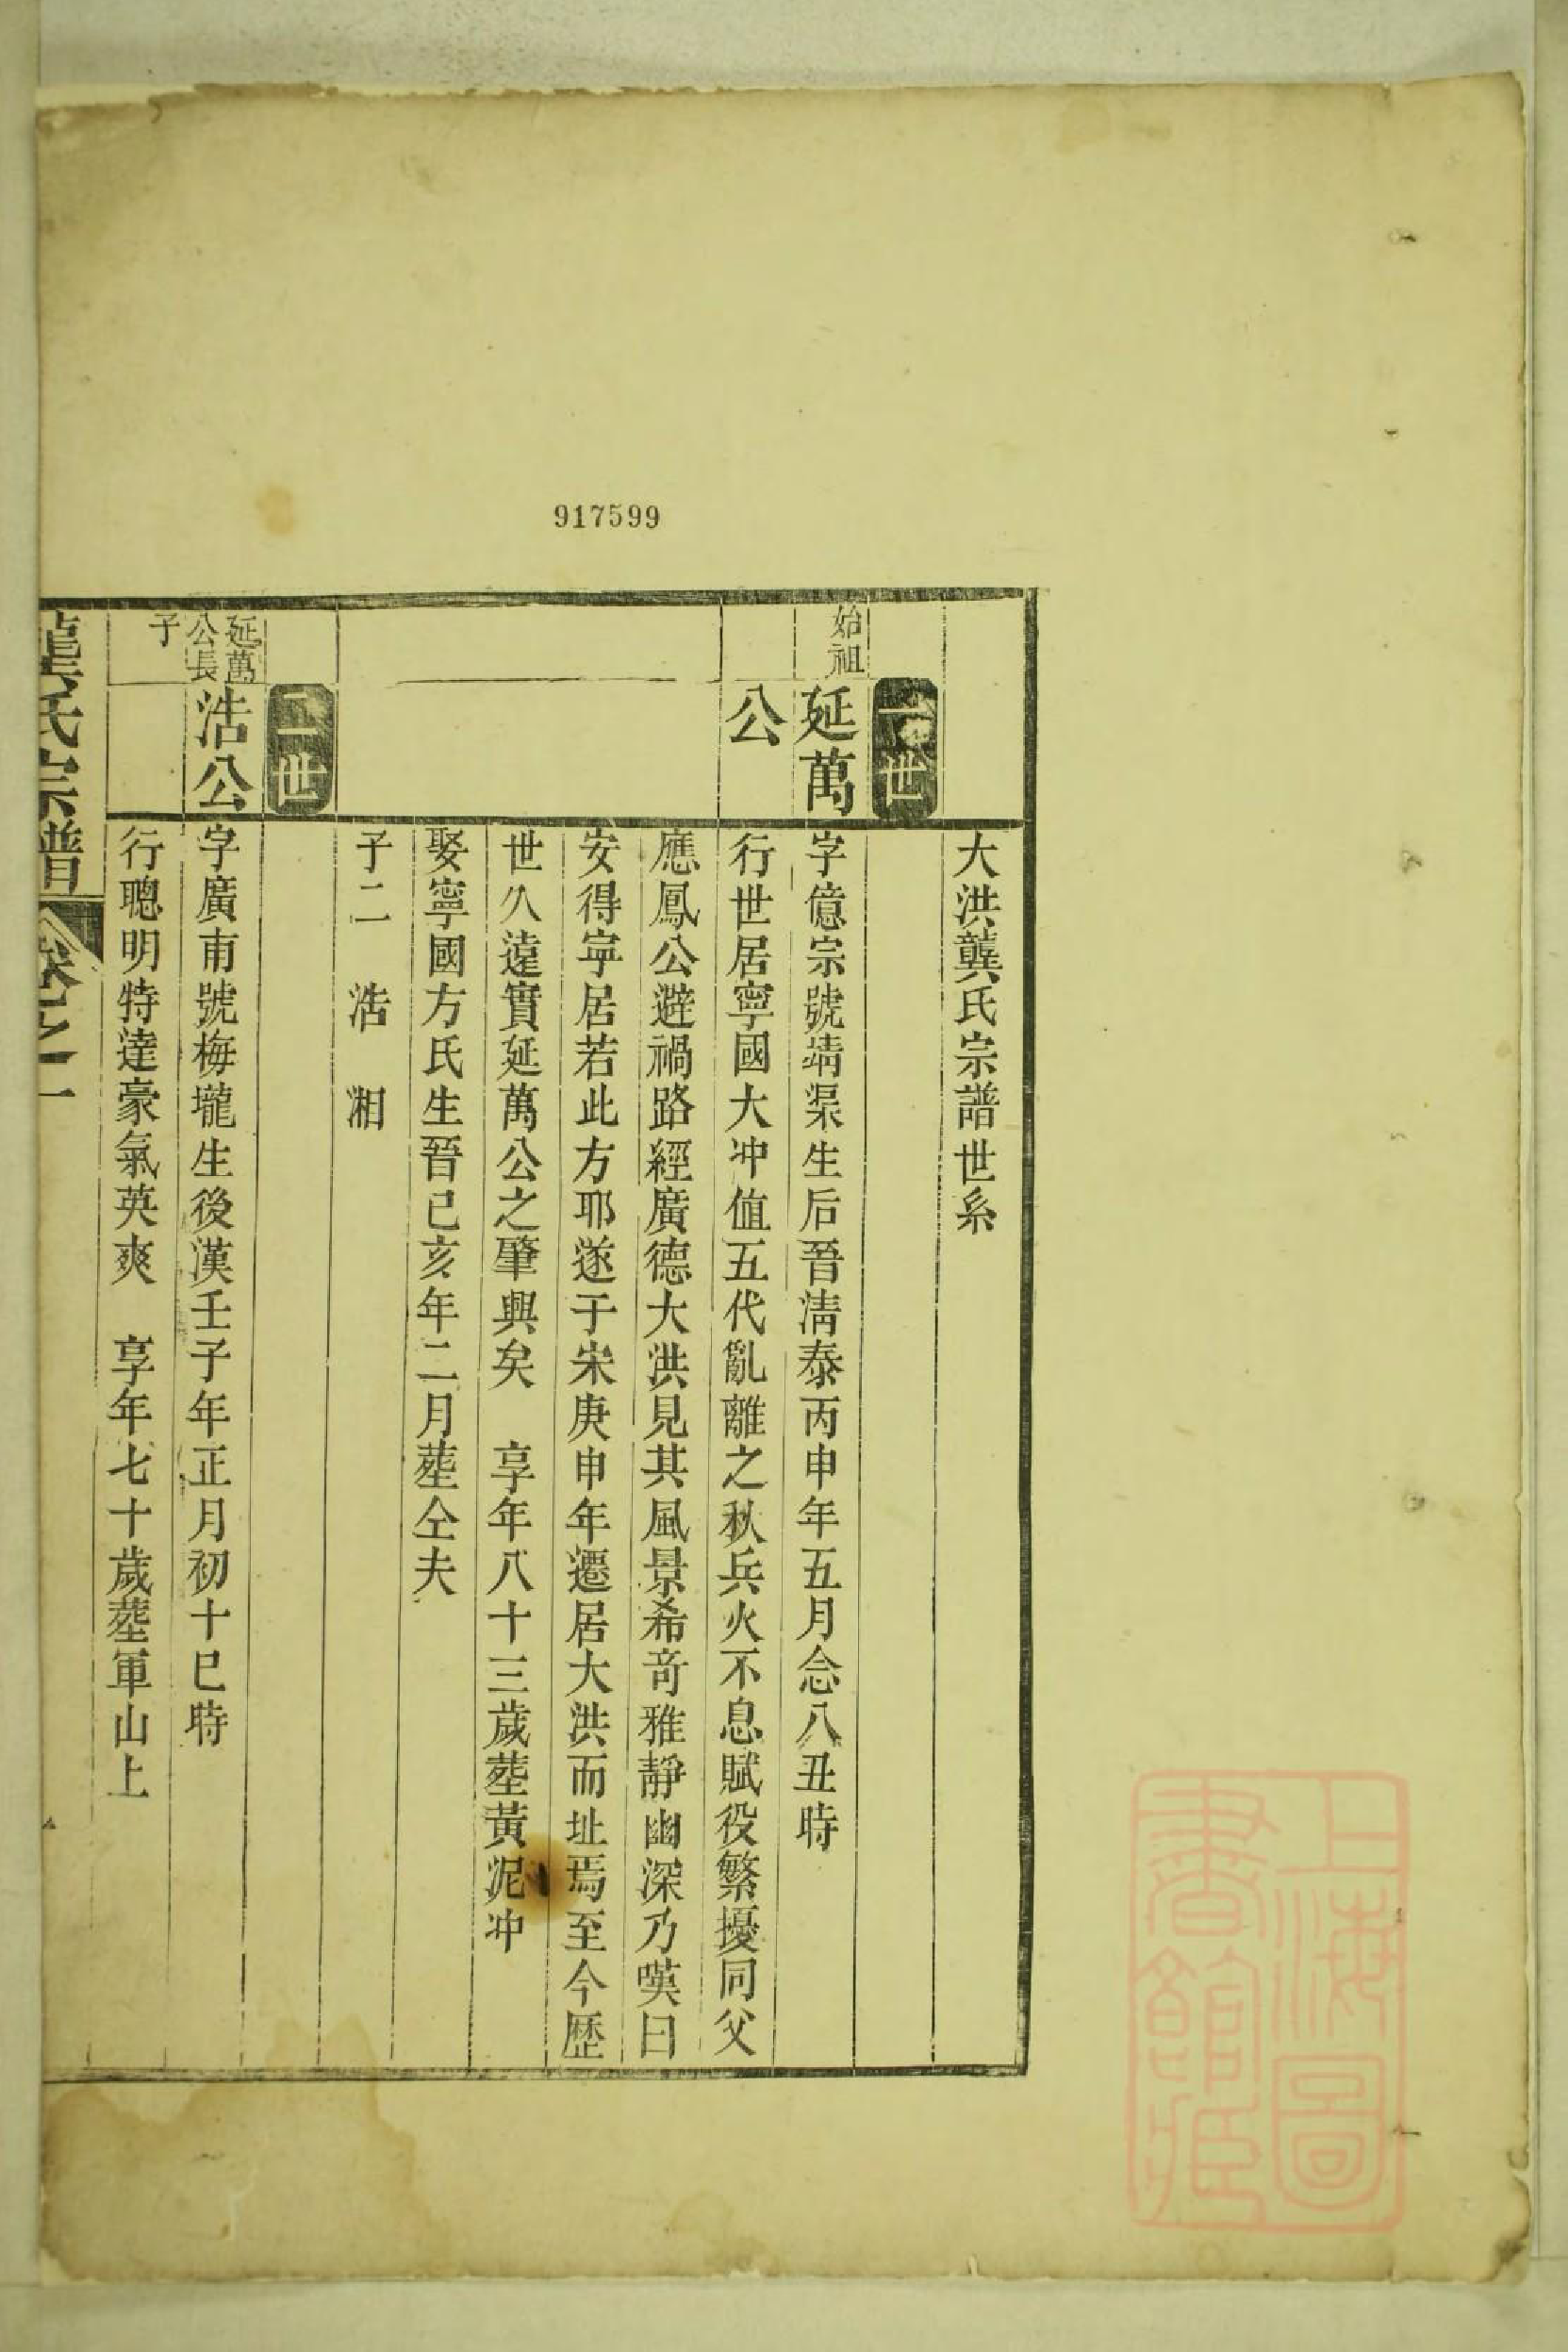 917599
大洪龔氏宗譜世系
一世
始祖
延萬
字億宗號靖渠生后晉淸泰丙申年五月念八丑時
公
行世居寧國大冲值五代亂離之秋兵火不息賦役繁擾同父
應鳳公避禍路經廣德大洪見其風景希竒雅靜幽深乃嘆曰
安得寧居若此方耶遂于宋庚申年遷居大洪而址焉至今歷
世久遠實延萬公之肇興矣　享年八十三歲塟黃泥冲
娶寧國方氏生晉已亥年二月塟仝夫
子二　浩　湘
二世
延萬
公長
子
浩公
字廣甫號梅壠生後漢壬子年正月初十巳時
行聰明特達豪氣英爽　享年七十歲塟軍山上
龔氏宗譜
卷之一
上海圖
書館藏